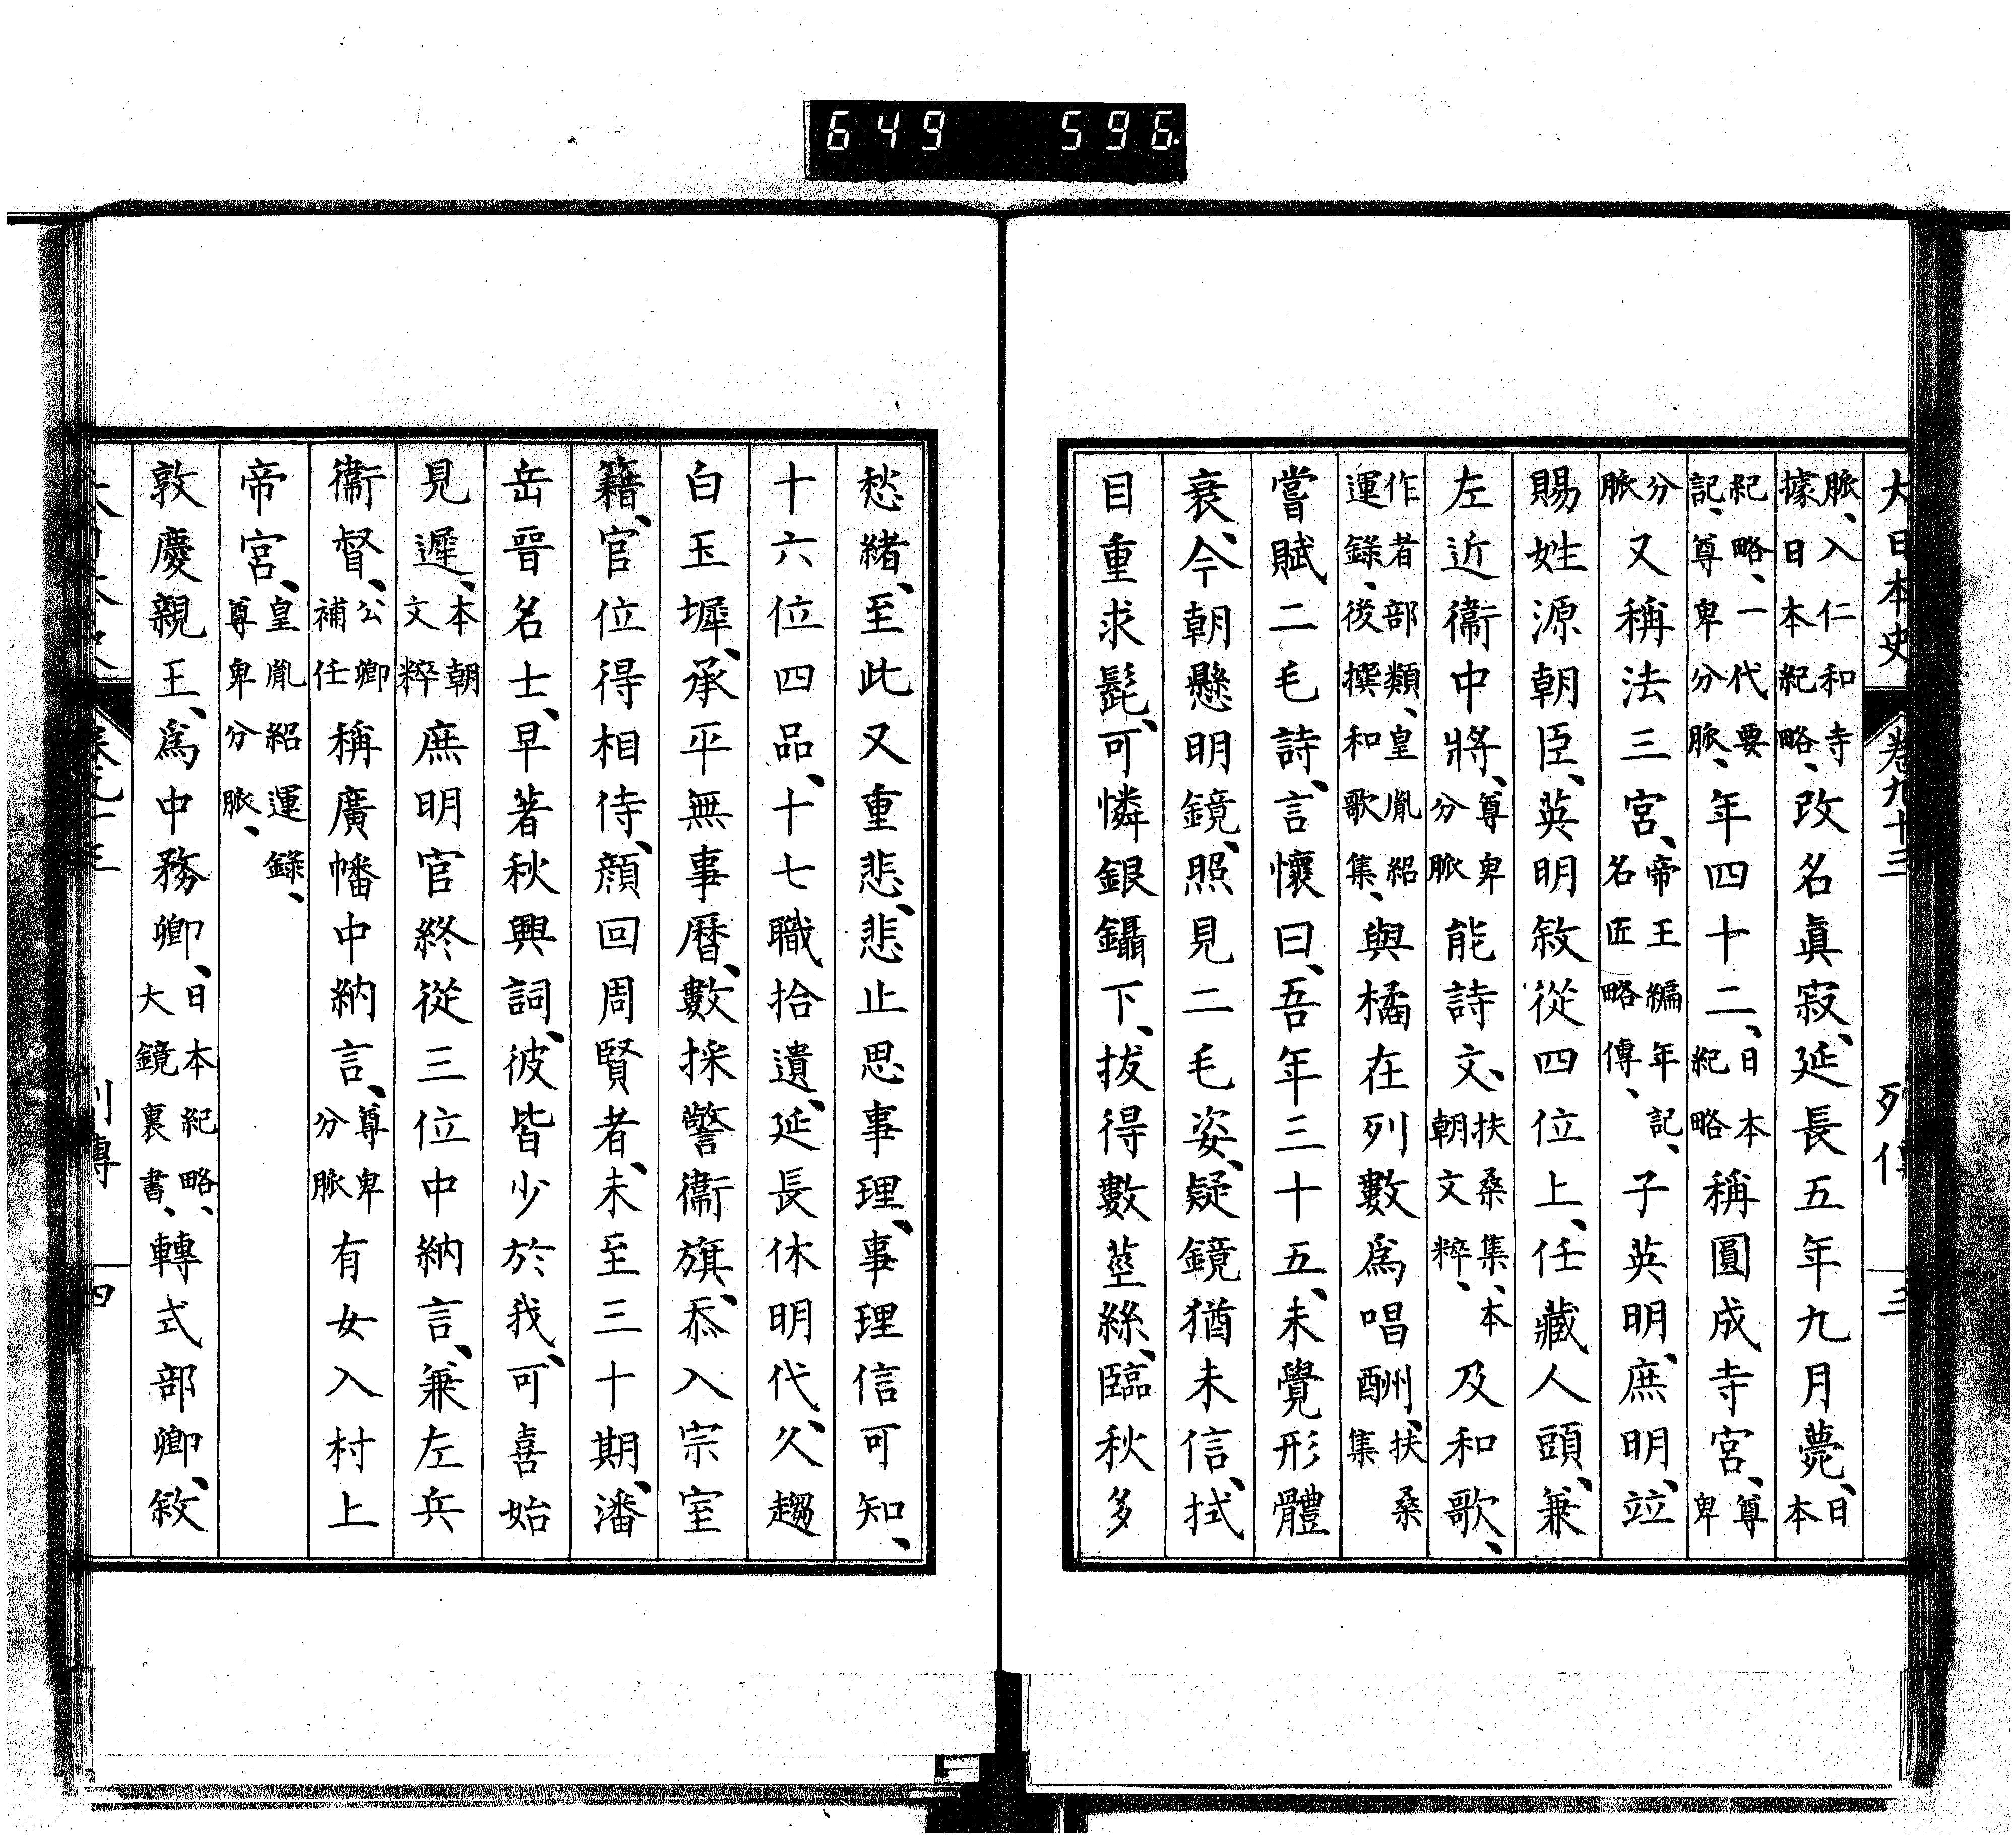 649 596
大日本史 卷九十三 列傳 三
脈、入仁和寺據日本紀略、改名眞寂、延長五年九月薨、日本
紀略、一代要記、尊卑分脈、年四十二、日本紀略稱圓成寺宮、尊卑
分脈又稱法三宮、帝王編年記、名匠略傳、子英明、庶明、竝
賜姓源朝臣、英明敘從四位上、任藏人頭、兼
左近衞中將、尊卑分脈能詩文、扶桑集、本朝文粹、及和歌、
作者部類、皇胤紹運錄、後撰和歌集、與橘在列數爲唱酬、扶桑集
嘗賦二毛詩、言懷曰、吾年三十五、未覺形體
衰、今朝懸明鏡、照見二毛姿、疑鏡猶未信、拭
目重求髭、可憐銀鑷下、拔得數莖絲、臨秋多
愁緒、至此又重悲、悲止思事理、事理信可知、
十六位四品、十七職拾遺、延長休明代、久趨
白玉墀、承平無事曆、數採警衞旗、忝入宗室
籍、官位得相侍、顔回周賢者、未至三十期、潘
岳晉名士、早著秋興詞、彼皆少於我、可喜始
見遲、本朝文粹庶明官終從三位中納言、兼左兵
衞督、公卿補任稱廣幡中納言、尊卑分脈有女入村上
帝宮、皇胤紹運錄、尊卑分脈、
敦慶親王、爲中務卿、日本紀略、大鏡裏書、轉式部卿、敘
列傳 四